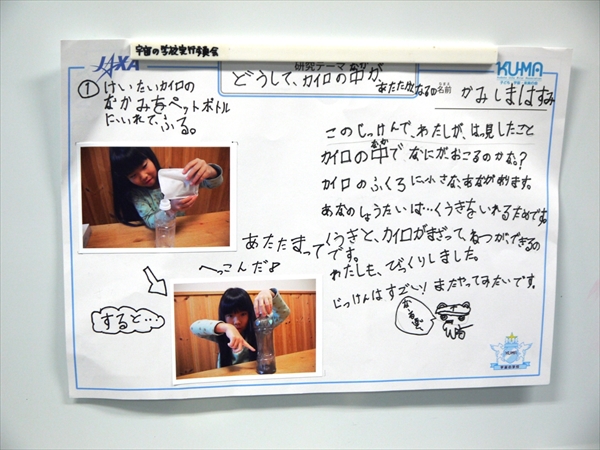 宇宙の学校実行委員会
JAXA
KUMA
研究テーマ
どうして、カイロの中が、
なか
あたたかくなるの
名前
かみしまはすみ
①けいたいカイロの
なかみをペットボトル
にいれて、ふる。
このじっけんで、わたしが、はっ見したこと
カイロの中でなにが、おこるのかな。?
なか
カイロのふくろに小さな、あながあります。
あなのしょうたいは…くうきをいれるためです。
くうきと、カイロがまざって、ねつが、できるの
です。
わたしも、びっくりしました。
じっけんはすごい!またやってみたいです。
あたたまって
へっこんだよ
すると…
KUMA